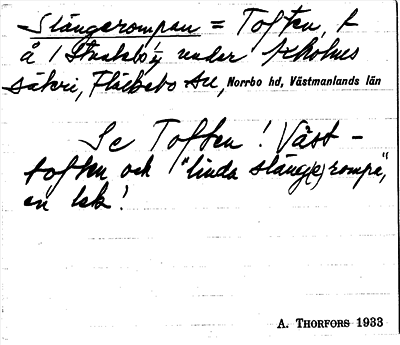 Slängerompan = Toften, t
å 1 Stabby under Axholms
säteri, Fläckebo sn, Norrbo hd, Västmanlands län
Se Toften! Väst-
toften och "linda släng(e)rompa",
en lek!
A. THORFORS 1933